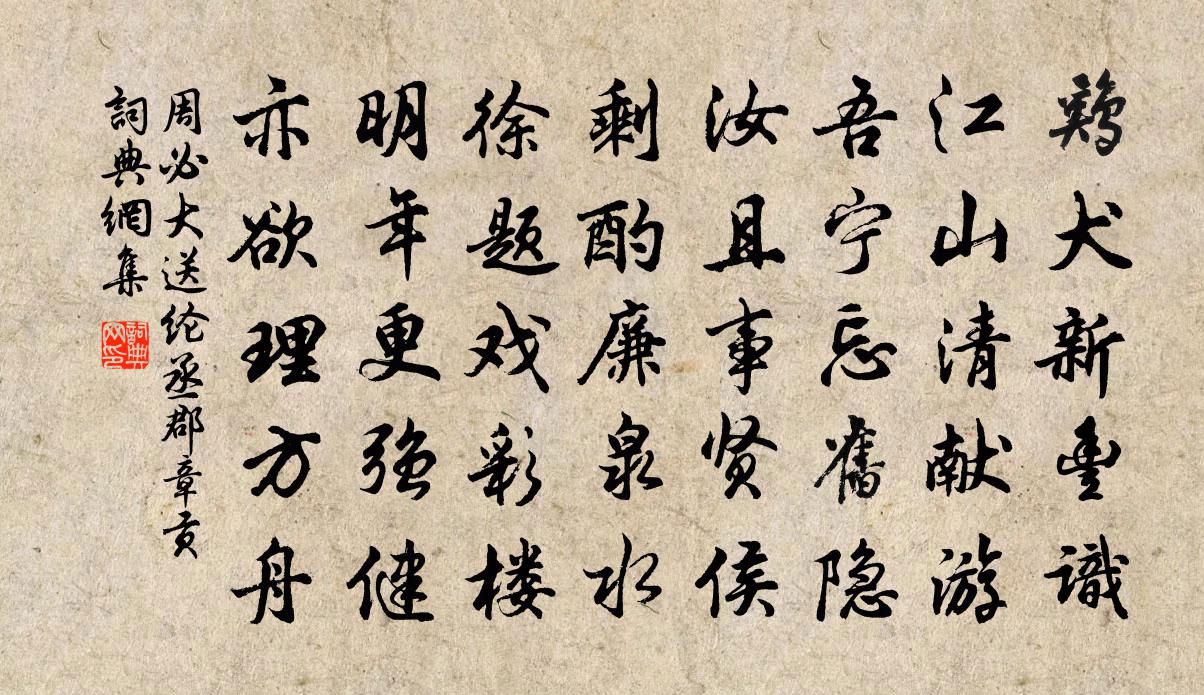 鷄犬新豊識
江山清献游
吾宁忘舊隐
汝且事贤侯
剩酌廉泉水
徐题戏彩楼
明年更强健
亦欲理方舟
周必大送纶丞郡章贡
詞典網集
詞典
网印